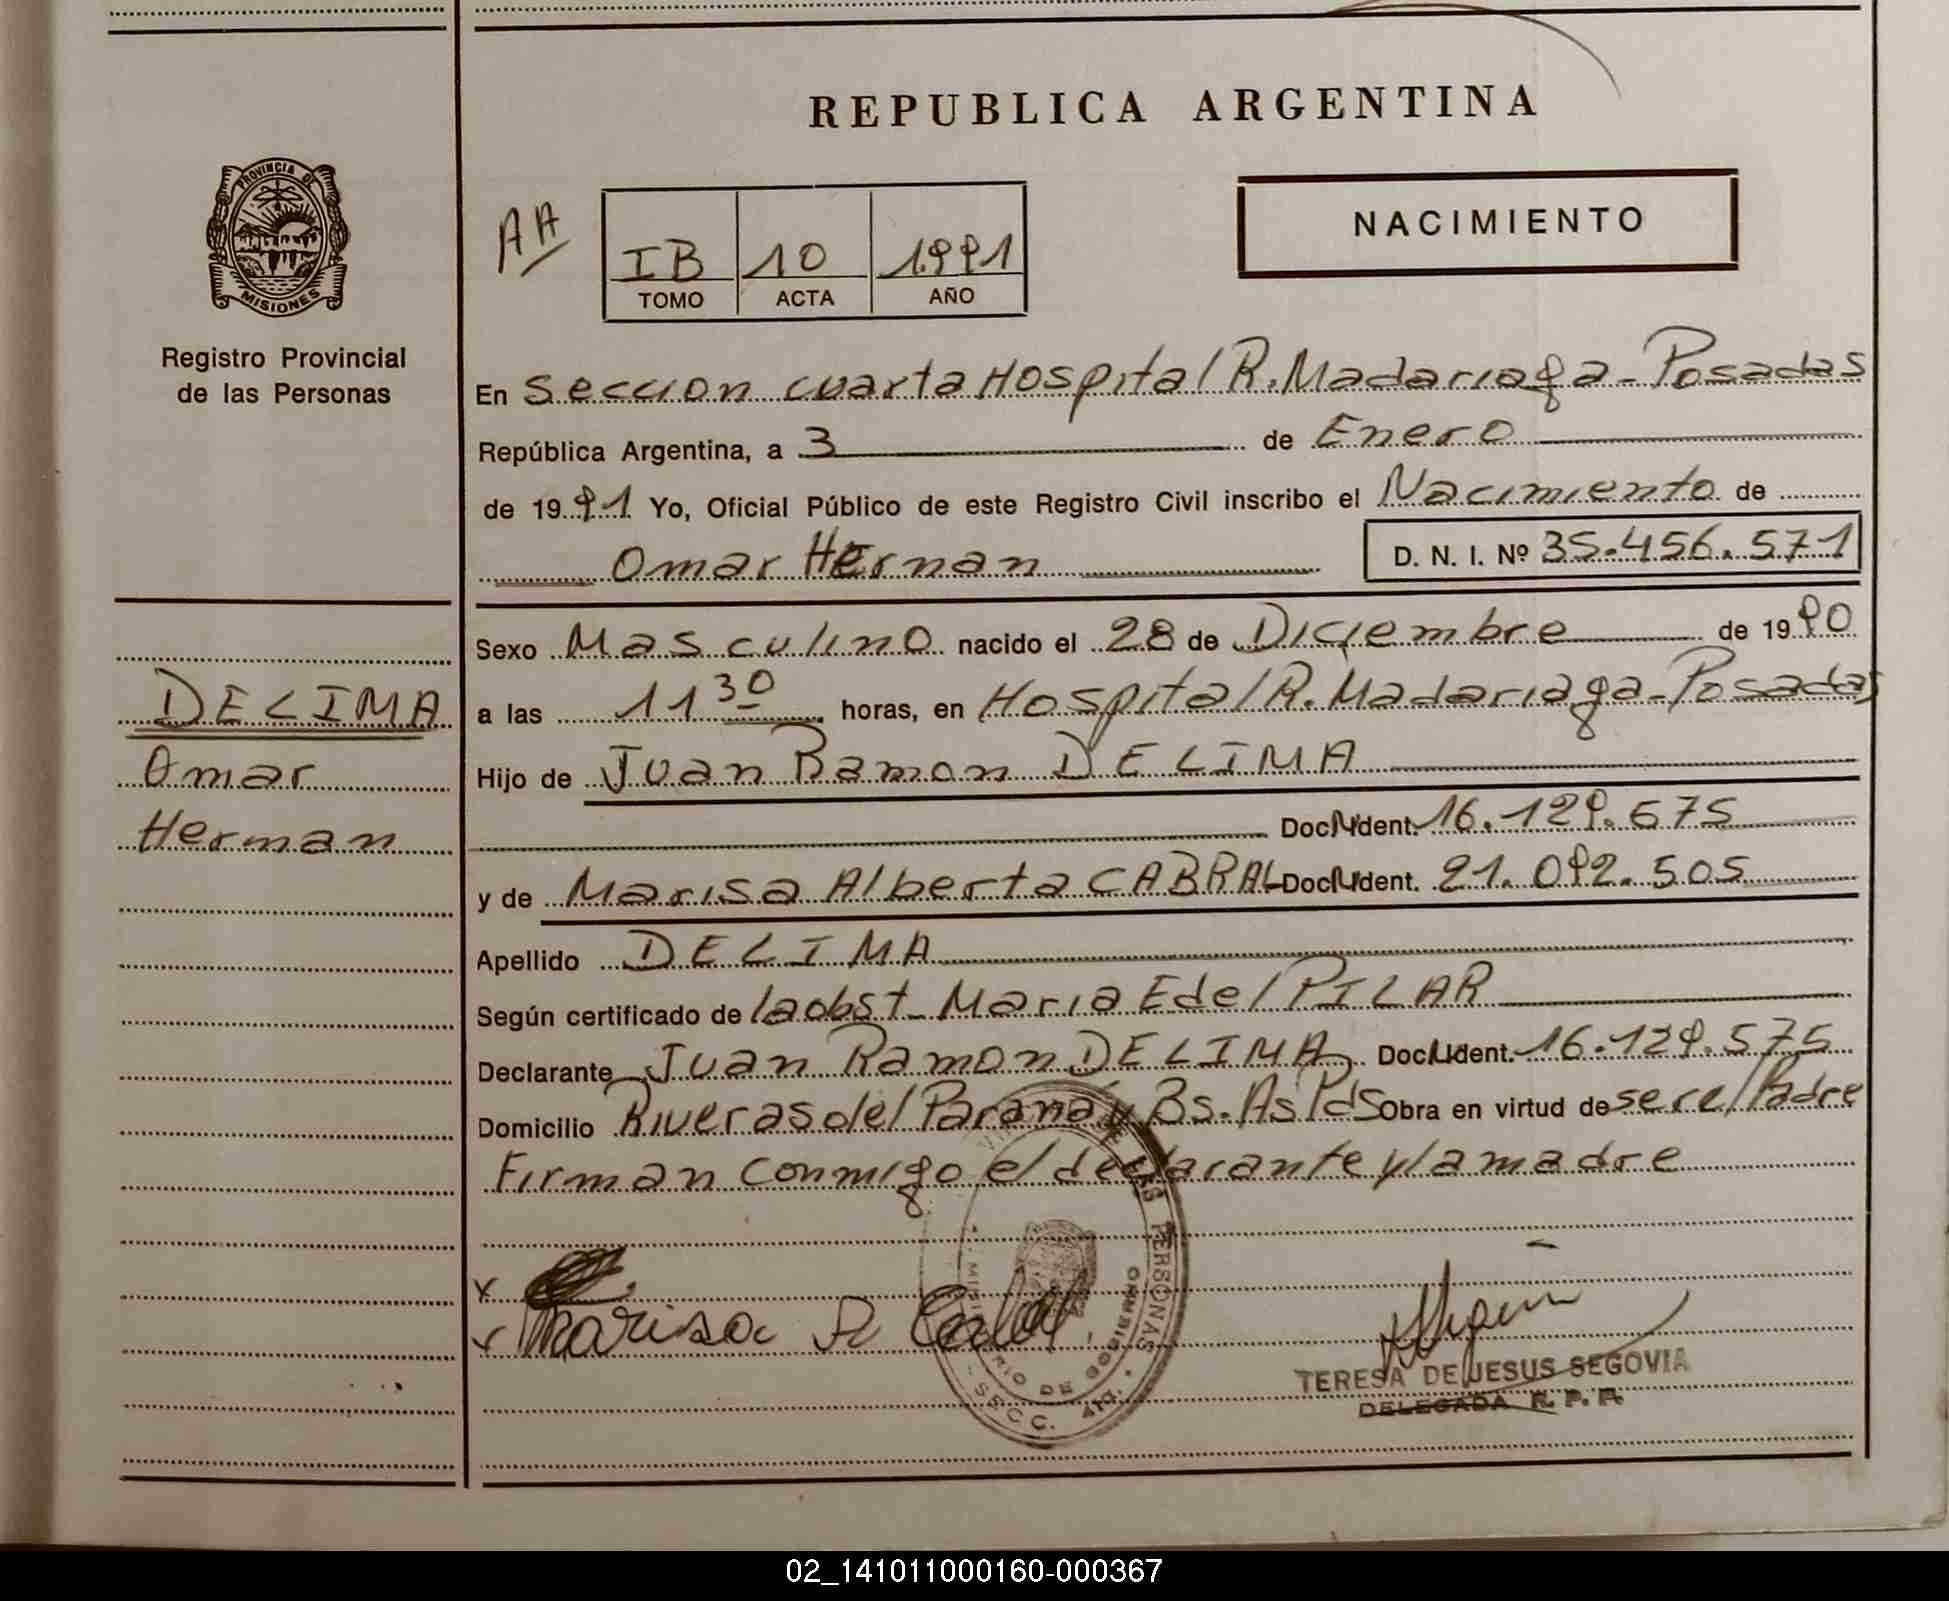 REPUBLICA ARGENTINA
PROVINCIA DE
MISIONES
Registro Provincial
de las Personas
AA
IB 10 1991
TOMO ACTA AÑO
NACIMIENTO
En Seccion cuarta Hospital R. Madariaga - Posadas
República Argentina, a 3 de Enero
de 1991 Yo, Oficial Público de este Registro Civil inscribo el Nacimiento de
Omar Hernan D. N. I. Nº 35.456.571
Sexo Masculino nacido el 28 de Diciembre de 1990
DELIMA
a las 11 30 horas, en Hospital R. Madariaga - Posadas
Omar
Hijo de Juan Ramon DELIMA
Herman
Doc. Ident. 16.129.675
y de Marisa Alberta CABRAL Doc. Ident. 21.092.505
Apellido DELIMA
Según certificado de la obst. Maria E del PILAR
Declarante Juan Ramon DELIMA Doc. Ident. 16.129.575
Domicilio Riveras del Parana y Bs. As Pds Obra en virtud de ser el Padre
Firman conmigo el declarante y la madre
Marisa A
PERSONAS
MINISTERIO DE GOBIERNO
SECC. 4ta.
TERESA DE JESUS SEGOVIA
DELEGADA R. P. P.
02_141011000160-000367